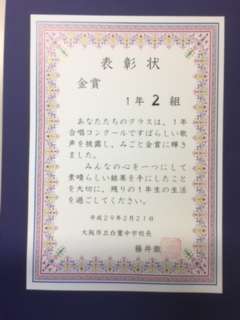 表彰状
金賞
1年 2 組
あなたたちのクラスは、1年
合唱コンクールですばらしい歌
声を披露し、みごと金賞に輝き
ました。
みんなの心を一つにして
素晴らしい結果を手にしたこと
を大切に、残りの1年生の生活
を過ごしてください。
平成29年2月21日
大阪市立白鷺中学校長
藤井